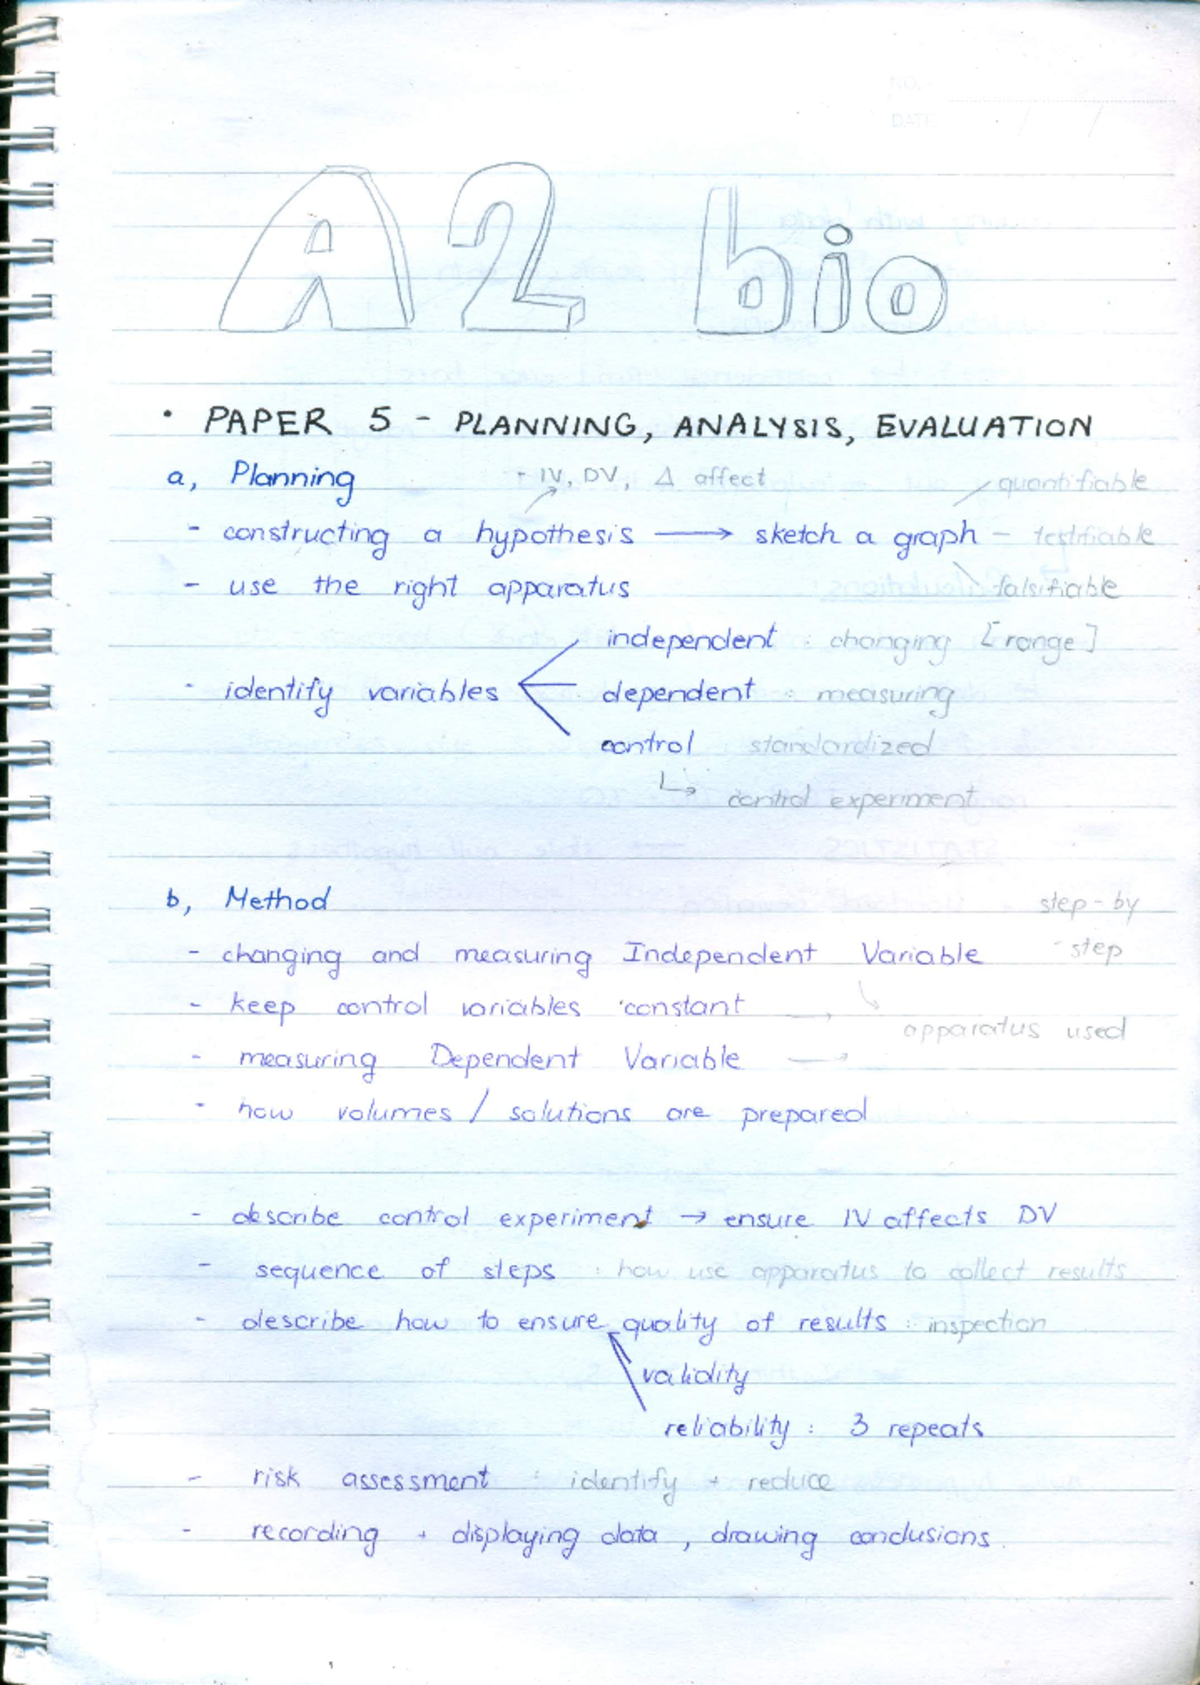 NO.
DATE / /
A2 bio
• PAPER 5 - PLANNING, ANALYSIS, EVALUATION
a, Planning + IV, DV, Δ affect quantifiable
- constructing a hypothesis → sketch a graph - testifiable
- use the right apparatus falsifiable
independent : changing [range]
- identify variables dependent : measuring
control standardized
↳ control experiment
b, Method step-by
- changing and measuring Independent Variable -step
- keep control variables constant →
apparatus used
- measuring Dependent Variable →
- how volumes / solutions are prepared
- describe control experiment → ensure IV affects DV
- sequence of steps : how use apparatus to collect results
- describe how to ensure quality of results : inspection
validity
reliability : 3 repeats
- risk assessment : identify + reduce
- recording + displaying data, drawing conclusions.